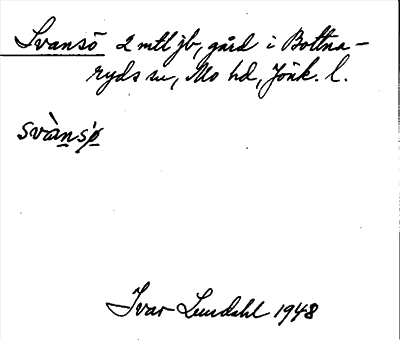 Svansö 2 mtl jb, gård i Bottna-
ryds sn, Mo hd, Jönk. l.
svànsø
Ivar Lundahl 1948